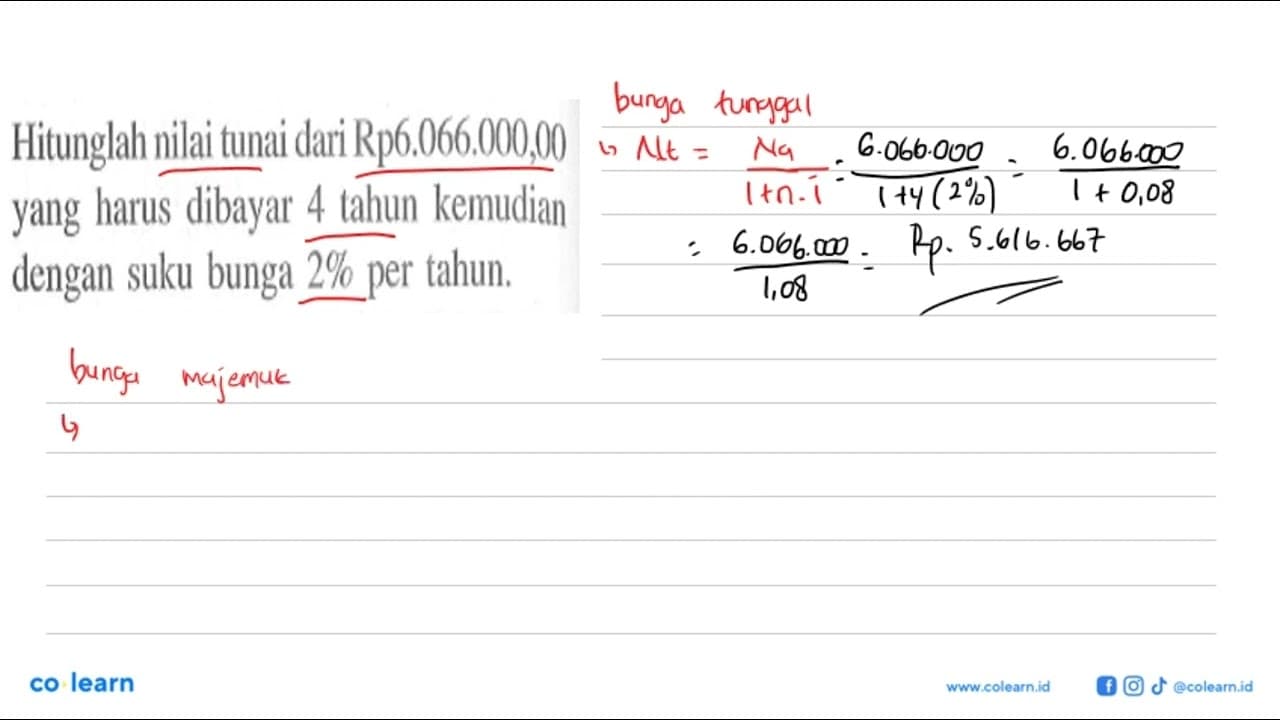 Hitunglah nilai tunai dari Rp6.066.000,00
yang harus dibayar 4 tahun kemudian
dengan suku bunga 2% per tahun.
bunga tunggal
↳ Nt = Na / 1+n.i = 6.066.000 / 1+4(2%) = 6.066.000 / 1 + 0,08
= 6.066.000 / 1,08 = Rp. 5.616.667
bunga majemuk
↳
co learn
www.colearn.id
@colearn.id